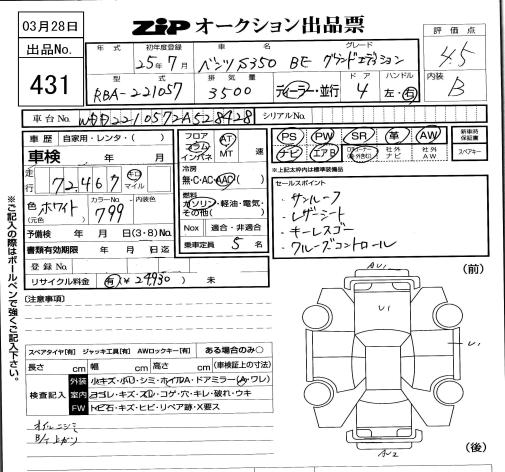 03月28日
ZIP オークション出品票
評価点
4.5
出品No.
431
年式 初年度登録 車名 グレード
25年7月 ベンツ S350 BE グランドエディション
型式 排気量 ドア ハンドル
RBA-221057 3500 ディーラー・並行 4 左・右
内装
B
車台No. WDD2210572A528428 シリアルNo.
車歴 自家用・レンタ・( )
車検 年 月
走行 72.467 キロ マイル
色(元色) ホワイト カラーNo. 799 内装色
予備検 年 月 日(3・8)No.
書類有効期限 年 月 日迄
登録No.
リサイクル料金 有(¥24,930) 未
フロア コラム インパネ AT MT 速
冷房
無・C・AC・AAC
燃料
ガソリン・軽油・電気・その他( )
Nox 適合・非適合
乗車定員 5 名
PS PW SR 革 AW 新車時保証書
ナビ エアB 社外ナビ 社外AW スペアキー
※上記太枠内は標準装備
セールスポイント
・サンルーフ
・レザーシート
・キーレスゴー
・クルーズコントロール
※ご記入の際はボールペンで強くご記入下さい。
[注意事項]
スペアタイヤ[有] ジャッキ工具[有] AWロックキー[有] ある場合のみ○
長さ cm 幅 cm 高さ cm (車検証上の寸法)
検査記入
外装 小キズ・小U・シミ・ホイルA・ドアミラー(A・ワレ)
室内 ヨゴレ・キズ・スレ・コゲ・穴・キレ・破れ・ウキ
FW トビ石・キズ・ヒビ・リペア跡・X要ス
オイルニジミ
(前)
AU1
U1
U1
AU2
(後)